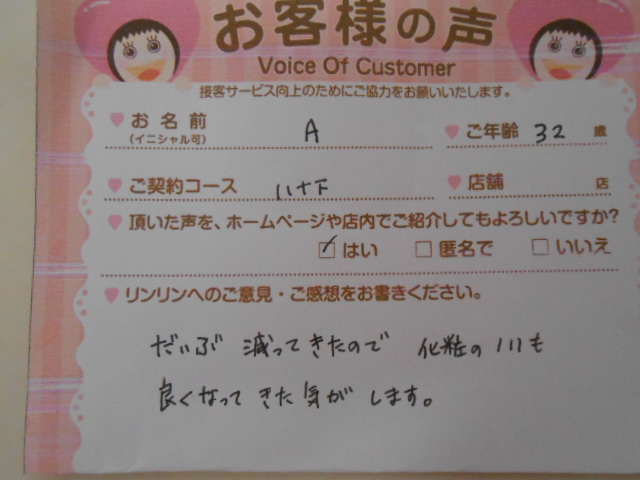 お客様の声
Voice Of Customer
接客サービス向上のためにご協力をお願いいたします。
お名前 A ご年齢 32 歳
(イニシャル可)
ご契約コース ハナ下 店舗 店
頂いた声を、ホームページや店内でご紹介してもよろしいですか?
はい 匿名で いいえ
リンリンへのご意見・ご感想をお書きください。
だいぶ 減ってきたので 化粧のノリも
良くなって きた 気が します。